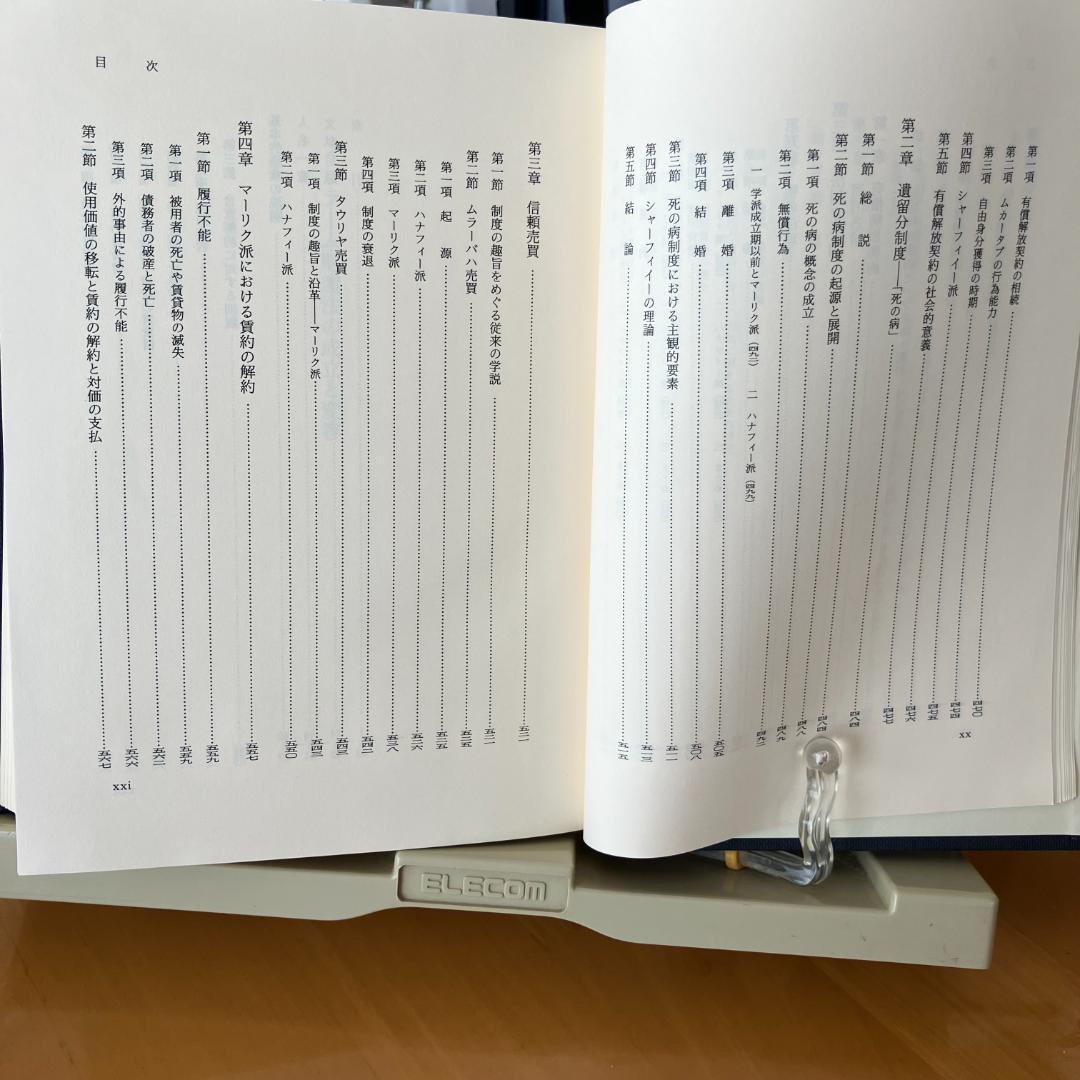 第一項　有償解放契約の相続……四七〇
第二項　ムカータブの行為能力……四七四
第三項　自由身分獲得の時期……四七五
第四節　シャーフィイー派……四七六
第五節　有償解放契約の社会的意義……四七七
第二章　遺留分制度――「死の病」……四八四
第一節　総　説……四八四
第二節　死の病制度の起源と展開……四八八
第一項　死の病の概念の成立……四八八
第二項　無償行為……四八九
一　学派成立期以前とマーリク派（四九二）　二　ハナフィー派（四九九）
第三項　離　婚……五〇五
第四項　結　婚……五〇八
第三節　死の病制度における主観的要素……五一一
第四節　シャーフィイーの理論……五一三
第五節　結　論……五一五
xx
目　次
第三章　信頼売買……五二一
第一節　制度の趣旨をめぐる従来の学説……五二一
第二節　ムラーバハ売買……五二五
第一項　起　源……五二五
第二項　ハナフィー派……五二六
第三項　マーリク派……五三八
第四項　制度の衰退……五四二
第三節　タウリヤ売買……五四三
第一項　制度の趣旨と沿革――マーリク派……五四三
第二項　ハナフィー派……五五〇
第四章　マーリク派における賃約の解約……五五七
第一節　履行不能……五五九
第一項　被用者の死亡や賃貸物の滅失……五五九
第二項　債務者の破産と死亡……五六二
第三項　外的事由による履行不能……五六六
第二節　使用価値の移転と賃約の解約と対価の支払……五六七
xxi
ELECOM